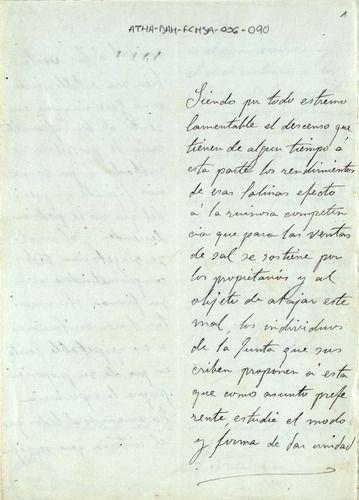 ATHA-DAH-FCHSA-026-090
1
Siendo por todo estremo
lamentable el descenso que
tienen de algun tiempo á
esta parte los rendimientos
de esas Salinas efecto
á la ruinosa competen
cia que para las ventas
de sal se sostiene por
los propietarios y al
objeto de atajar este
mal, los individuos
de la Junta que sus
criben proponen á esta
que como asunto prefe
rente, estudie el modo
y forma de dar unidad